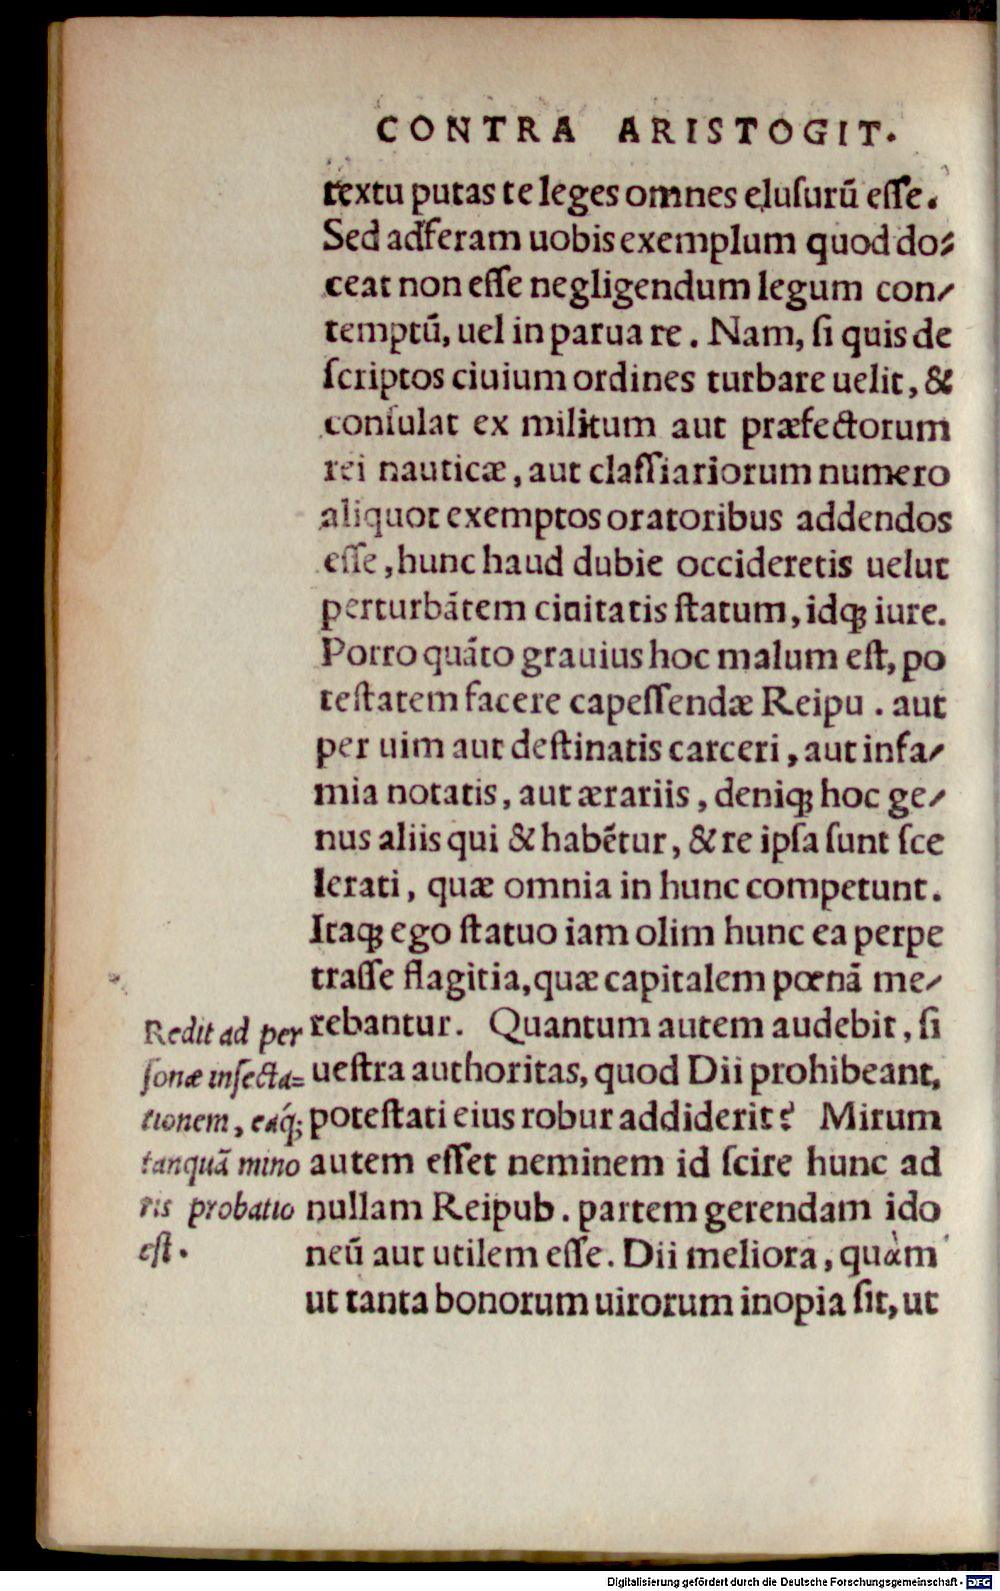 CONTRA ARISTOGIT.
textu putas te leges omnes eluſurũ eſſe.
Sed adferam uobis exemplum quod do⸗
ceat non eſſe negligendum legum con⸗
temptũ, uel in parua re. Nam, ſi quis de
ſcriptos ciuium ordines turbare uelit, &
conſulat ex militum aut præfectorum
rei nauticæ, aut claſſiariorum numero
aliquot exemptos oratoribus addendos
eſſe, hunc haud dubie occideretis uelut
perturbãtem ciuitatis ſtatum, idq́ꝫ iure.
Porro quãto grauius hoc malum eſt, po
teſtatem facere capeſſendæ Reipu. aut
per uim aut deſtinatis carceri, aut infa⸗
mia notatis, aut ærariis, deniqꝫ hoc ge⸗
nus aliis qui & habẽtur, & re ipſa ſunt ſce
lerati, quæ omnia in hunc competunt.
Itaqꝫ ego ſtatuo iam olim hunc ea perpe
traſſe flagitia, quæ capitalem pœnã me⸗
rebantur. Quantum autem audebit, ſi
ueſtra authoritas, quod Dii prohibeant,
poteſtati eius robur addiderit? Mirum
autem eſſet neminem id ſcire hunc ad
nullam Reipub. partem gerendam ido
neũ aut utilem eſſe. Dii meliora, quàm
ut tanta bonorum uirorum inopia ſit, ut
Redit ad per
ſonæ inſecta⸗
tionem, eáq́ꝫ
tanquã mino
ris probatio
eſt.
Digitalisierung gefördert durch die Deutsche Forschungsgemeinschaft - DFG